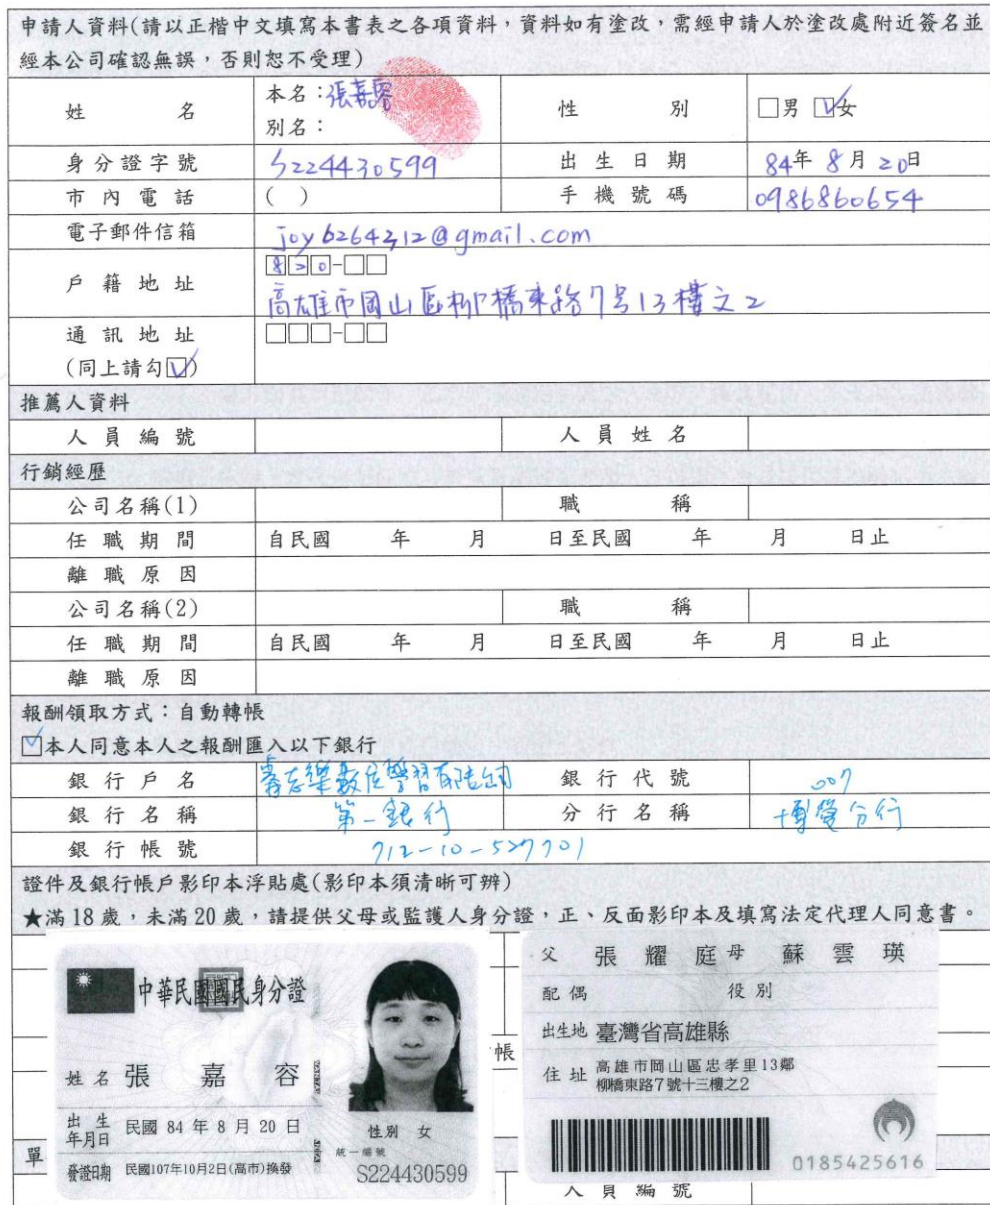 申請人資料(請以正楷中文填寫本書表之各項資料，資料如有塗改，需經申請人於塗改處附近簽名並
經本公司確認無誤，否則恕不受理)
姓 名 本名：張嘉容 性 別 □男 ☑女
別名：
身分證字號 S224430599 出生日期 84年 8月 20日
市內電話 ( ) 手機號碼 0986860654
電子郵件信箱 joy6264312@gmail.com
戶籍地址 820-□□
高雄市岡山區柳橋東路7号13樓之2
通訊地址 □□□-□□
(同上請勾☑)
推薦人資料
人員編號 人員姓名
行銷經歷
公司名稱(1) 職 稱
任職期間 自民國 年 月 日至民國 年 月 日止
離職原因
公司名稱(2) 職 稱
任職期間 自民國 年 月 日至民國 年 月 日止
離職原因
報酬領取方式：自動轉帳
☑本人同意本人之報酬匯入以下銀行
銀行戶名 數位學習有限公司 銀行代號 007
銀行名稱 第一銀行 分行名稱 博愛分行
銀行帳號 712-10-527701
證件及銀行帳戶影印本浮貼處(影印本須清晰可辨)
★滿18歲，未滿20歲，請提供父母或監護人身分證，正、反面影印本及填寫法定代理人同意書。
中華民國國民身分證
姓名 張 嘉 容
出生年月日 民國 84 年 8 月 20 日
性別 女
統一編號
發證日期 民國107年10月2日(高市)換發
S224430599
父 張耀庭 母 蘇雲瑛
配偶 役別
出生地 臺灣省高雄縣
住址 高雄市岡山區忠孝里13鄰
柳橋東路7號十三樓之2
0185425616
帳
單
人員編號